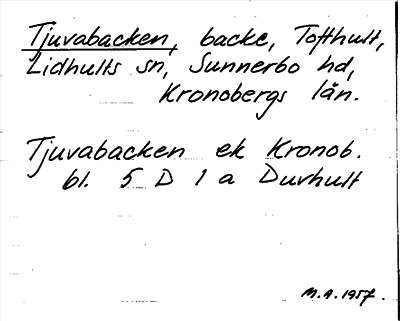 Tjuvabacken, backe, Tofthult,
Lidhults sn, Sunnerbo hd,
Kronobergs län.
Tjuvabacken ek Kronob.
bl. 5 D 1 a Duvhult
M.A. 1957.